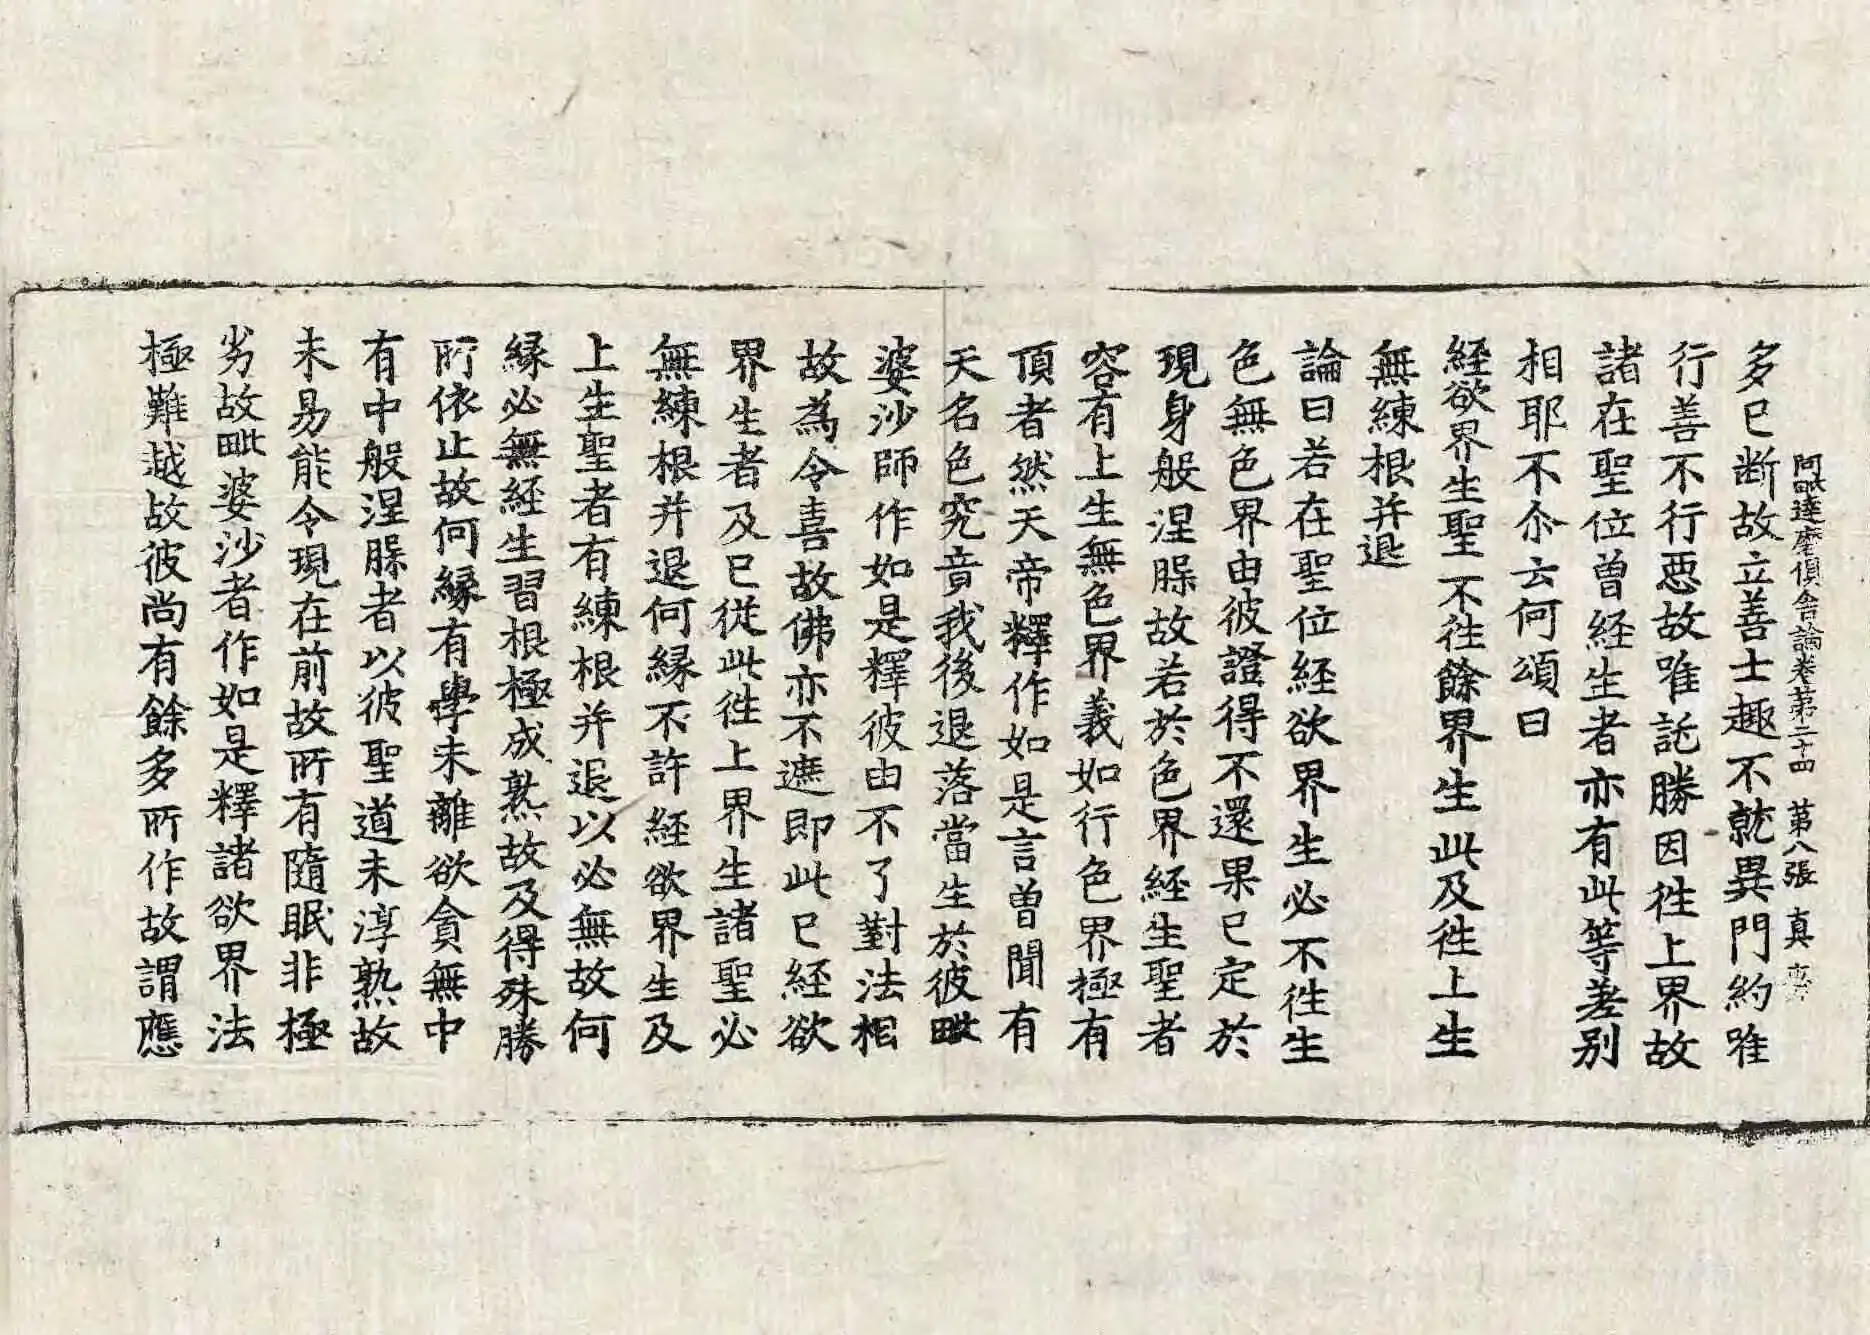 阿毗達磨俱舍論卷第二十四　第八張　真
多已断故立善士趣不就異門約唯
行善不行惡故唯託勝因徃上界故
諸在聖位曾経生者亦有此等差别
相耶不尒云何頌曰
経欲界生聖不徃餘界生此及徃上生
無練根并退
論曰若在聖位経欲界生必不徃生
色無色界由彼證得不還果已定於
現身般涅槃故若於色界経生聖者
容有上生無色界義如行色界極有
頂者然天帝釋作如是言曽聞有
天名色究竟我後退落當生於彼毗
婆沙師作如是釋彼由不了對法相
故為令喜故佛亦不遮即此已経欲
界生者及已從此徃上界生諸聖必
無練根并退何縁不許経欲界生及
上生聖者有練根并退以必無故何
縁必無経生習根極成熟故及得殊勝
所依止故何縁有學未離欲貪無中
有中般涅槃者以彼聖道未淳熟故
未易能令現在前故所有隨眠非極
劣故毗婆沙者作如是釋諸欲界法
極難越故彼尚有餘多所作故謂應